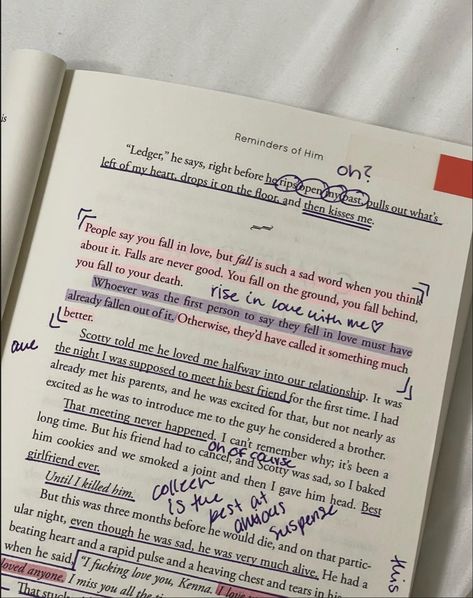 is
Reminders of Him
oh?
"Ledger," he says, right before he rips open my past, pulls out what's
left of my heart, drops it on the floor, and then kisses me.
People say you fall in love, but fall is such a sad word when you think
about it. Falls are never good. You fall on the ground, you fall behind,
you fall to your death.
rise in love with me ♡
Whoever was the first person to say they fell in love must have
already fallen out of it. Otherwise, they'd have called it something much
better.
Scotty told me he loved me halfway into our relationship. It was
the night I was supposed to meet his best friend for the first time. I had
already met his parents, and he was excited for that, but not nearly as
excited as he was to introduce me to the guy he considered a brother.
That meeting never happened. I can't remember why; it's been a
long time. But his friend had to cancel, and Scotty was sad, so I baked
oh of course
him cookies and we smoked a joint and then I gave him head. Best
girlfriend ever.
Until I killed him.
colleen
is the
best at
anxious
suspense
But this was three months before he would die, and on that partic-
ular night, even though he was sad, he was very much alive. He had a
beating heart and a rapid pulse and a heaving chest and tears in his
when he said, "I fucking love you, Kenna. I love
loved anyone. I miss you all the
That stuck
this